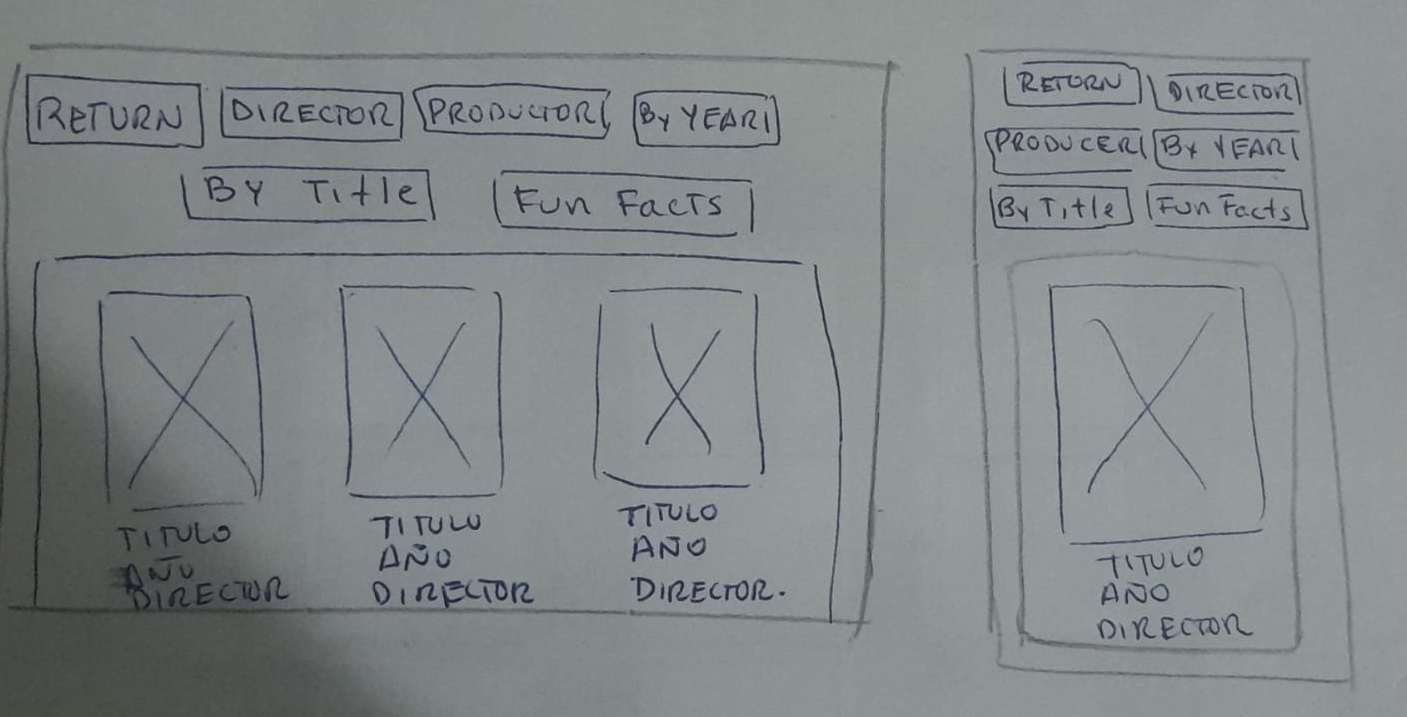 RETURN DIRECTOR PRODUCTOR By YEAR
BY Title Fun FACTS
TITULO TITULO TITULO
AÑO AÑO AÑO
DIRECTOR DIRECTOR DIRECTOR.
RETORN DIRECTOR
PRODUCER By YEAR
By Title Fun Facts
TITULO
AÑO
DIRECTOR